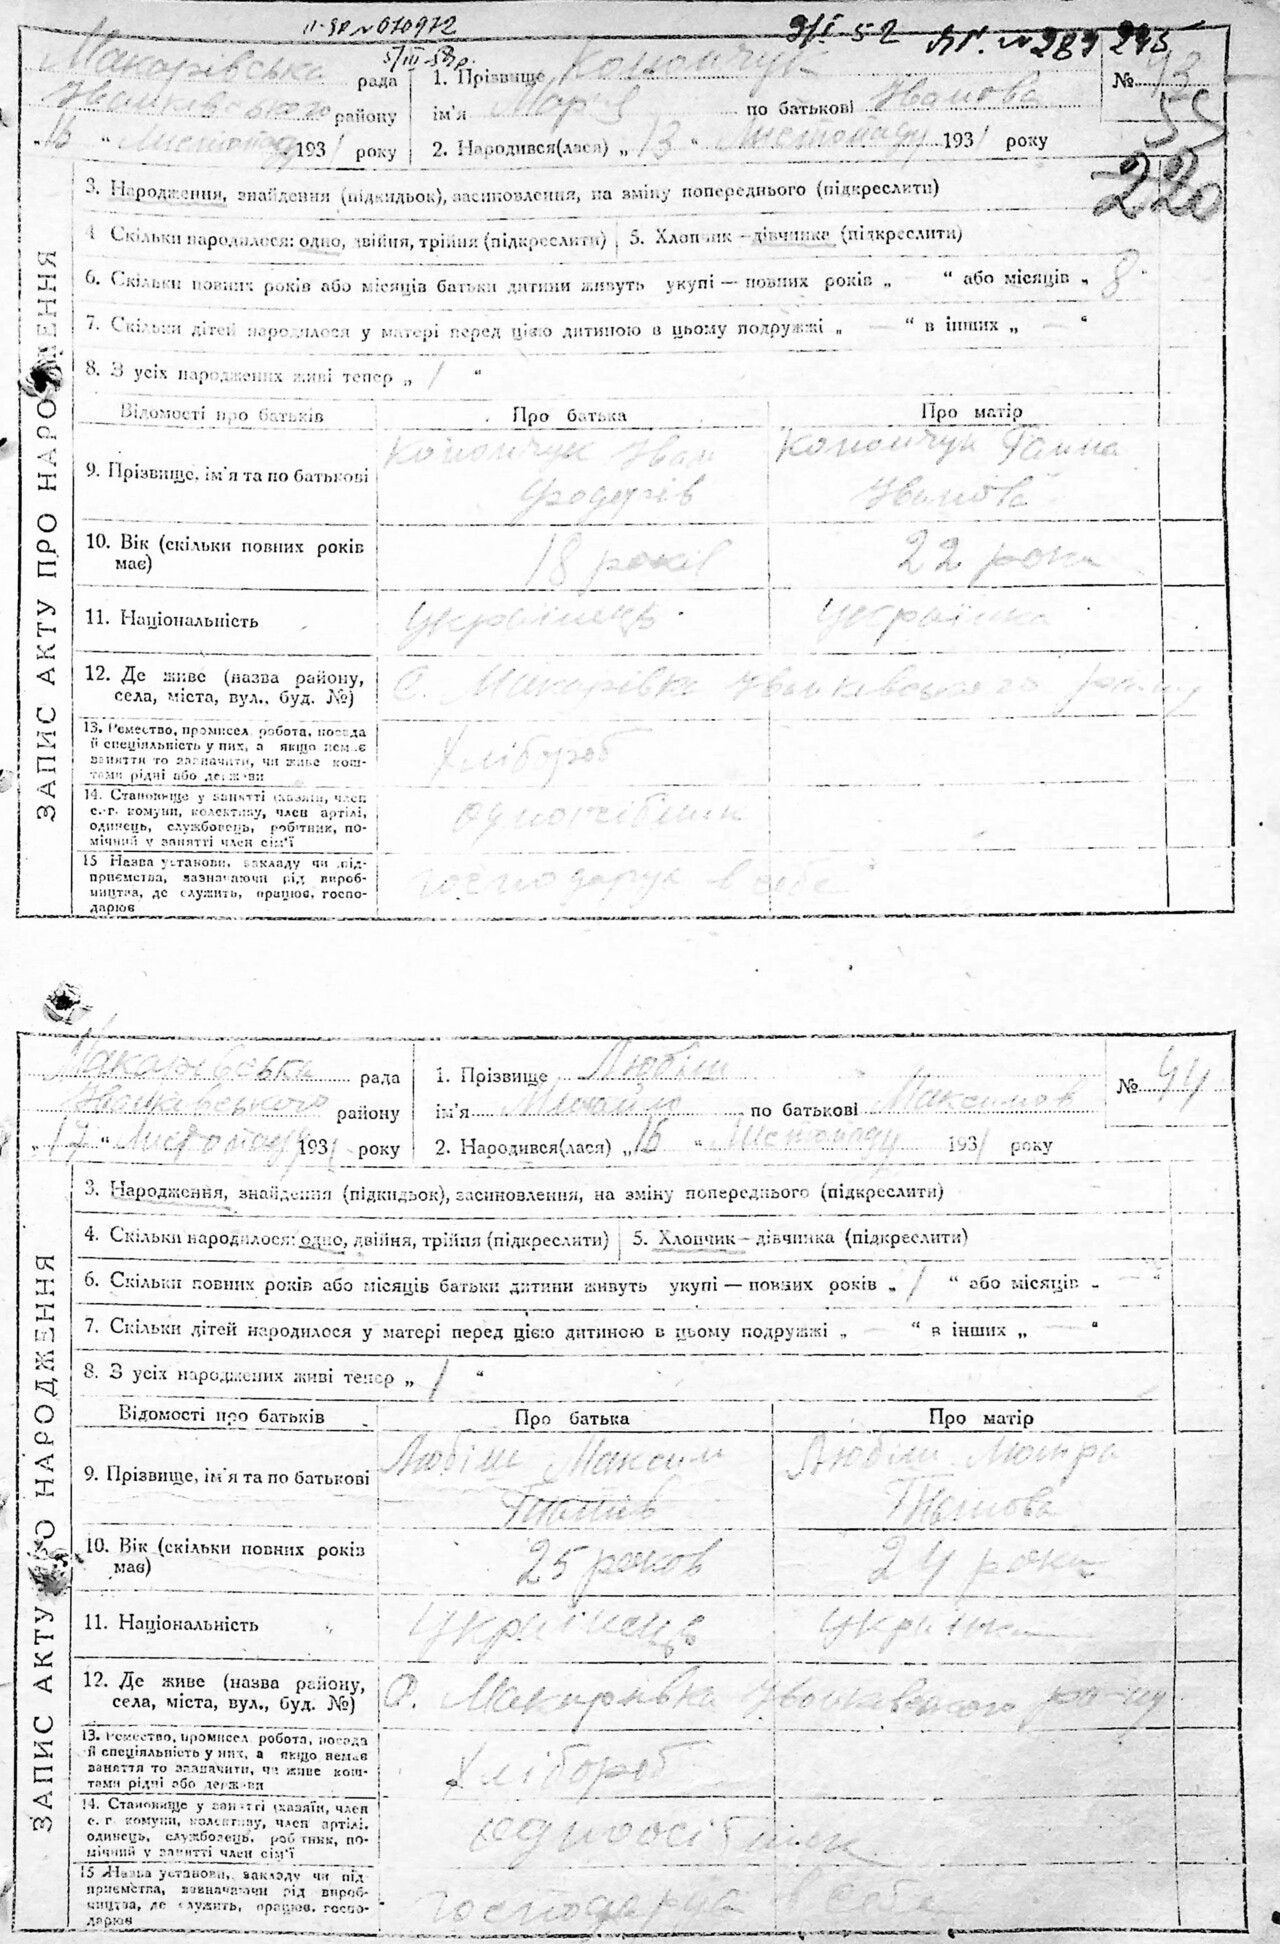 II-ЗР №070972
5/III-58р.
9/I-52 ЯГ. №289245
Макарівська рада
Іванківського району
„16 “ Листопаду 1931 року
1. Прізвище Конончук
ім'я Мар'я по батькові Іванова
2. Народився(лася) „ 13 “ Листопаду 1931 року
№ 43
55
220
ЗАПИС АКТУ ПРО НАРОДЖЕННЯ
3. Народження, знайдення (підкидьок), засиновлення, на зміну попереднього (підкреслити)
4 Скільки народилося: одно, двійня, трійня (підкреслити) 5. Хлопчик — дівчинка (підкреслити)
6. Скільки повних років або місяців батьки дитини живуть укупі — повних років „ “ або місяців „ 8
7. Скільки дітей народилося у матері перед цією дитиною в цьому подружжі „ — “ в інших „ — “
8. З усіх народжених живі тепер „ 1 “
Відомості про батьків Про батька Про матір
9. Прізвище, ім'я та по батькові Конончук Іван Конончук Ганна
Федорів Іванова
10. Вік (скільки повних років має) 18 років 22 роки
11. Національність Українець Українка
12. Де живе (назва району, села, міста, вул., буд. №) С. Макарівка Іванківського району
13. Ремество, промисел, робота, посада
й спеціяльність у них, а якщо немає
заняття то зазначити, чи живе кош-
тами рідні або держави Хлібороб
14. Становище у занятті (хазяїн, член
с.-г. комуни, колективу, член артілі,
одинець, службовець, робітник, по-
мічний у занятті член сім'ї одноосібник
15 Назва установи, закладу чи під-
приємства, зазначаючи рід вироб-
ництва, де служить, працює, госпо-
дарює господарує в себе
Макарівська рада
Іванківського району
„ 17 “ Листопаду 1931 року
1. Прізвище Любіш
ім'я Михайло по батькові Максимов
2. Народився(лася) „ 16 “ Листопаду 1931 року
№ 44
ЗАПИС АКТУ ПРО НАРОДЖЕННЯ
3. Народження, знайдення (підкидьок), засиновлення, на зміну попереднього (підкреслити)
4. Скільки народилося: одно, двійня, трійня (підкреслити) 5. Хлопчик — дівчинка (підкреслити)
6. Скільки повних років або місяців батьки дитини живуть укупі — повних років „ 1 “ або місяців „ — “
7. Скільки дітей народилося у матері перед цією дитиною в цьому подружжі „ — “ в інших „ — “
8. З усіх народжених живі тепер „ 1 “
Відомості про батьків Про батька Про матір
9. Прізвище, ім'я та по батькові Любіш Максим Любіш Мотра
10. Вік (скільки повних років має) 25 роков 24 роки
11. Національність Українець Українка
12. Де живе (назва району, села, міста, вул., буд. №) С. Макарівка Іванківського ра-ну
13. Ремество, промисел, робота, посада
й спеціяльність у них, а якщо немає
заняття то зазначити, чи живе кош-
тами рідні або держави Хлібороб
14. Становище у занятті (хазяїн, член
с. г. комуни, колективу, член артілі,
одинець, службовець, робітник, по-
мічний у занятті член сім'ї одноосібник
15 Назва установи, закладу чи під-
приємства, зазначаючи рід вироб-
ництва, де служить, працює, госпо-
дарює господарує в себе